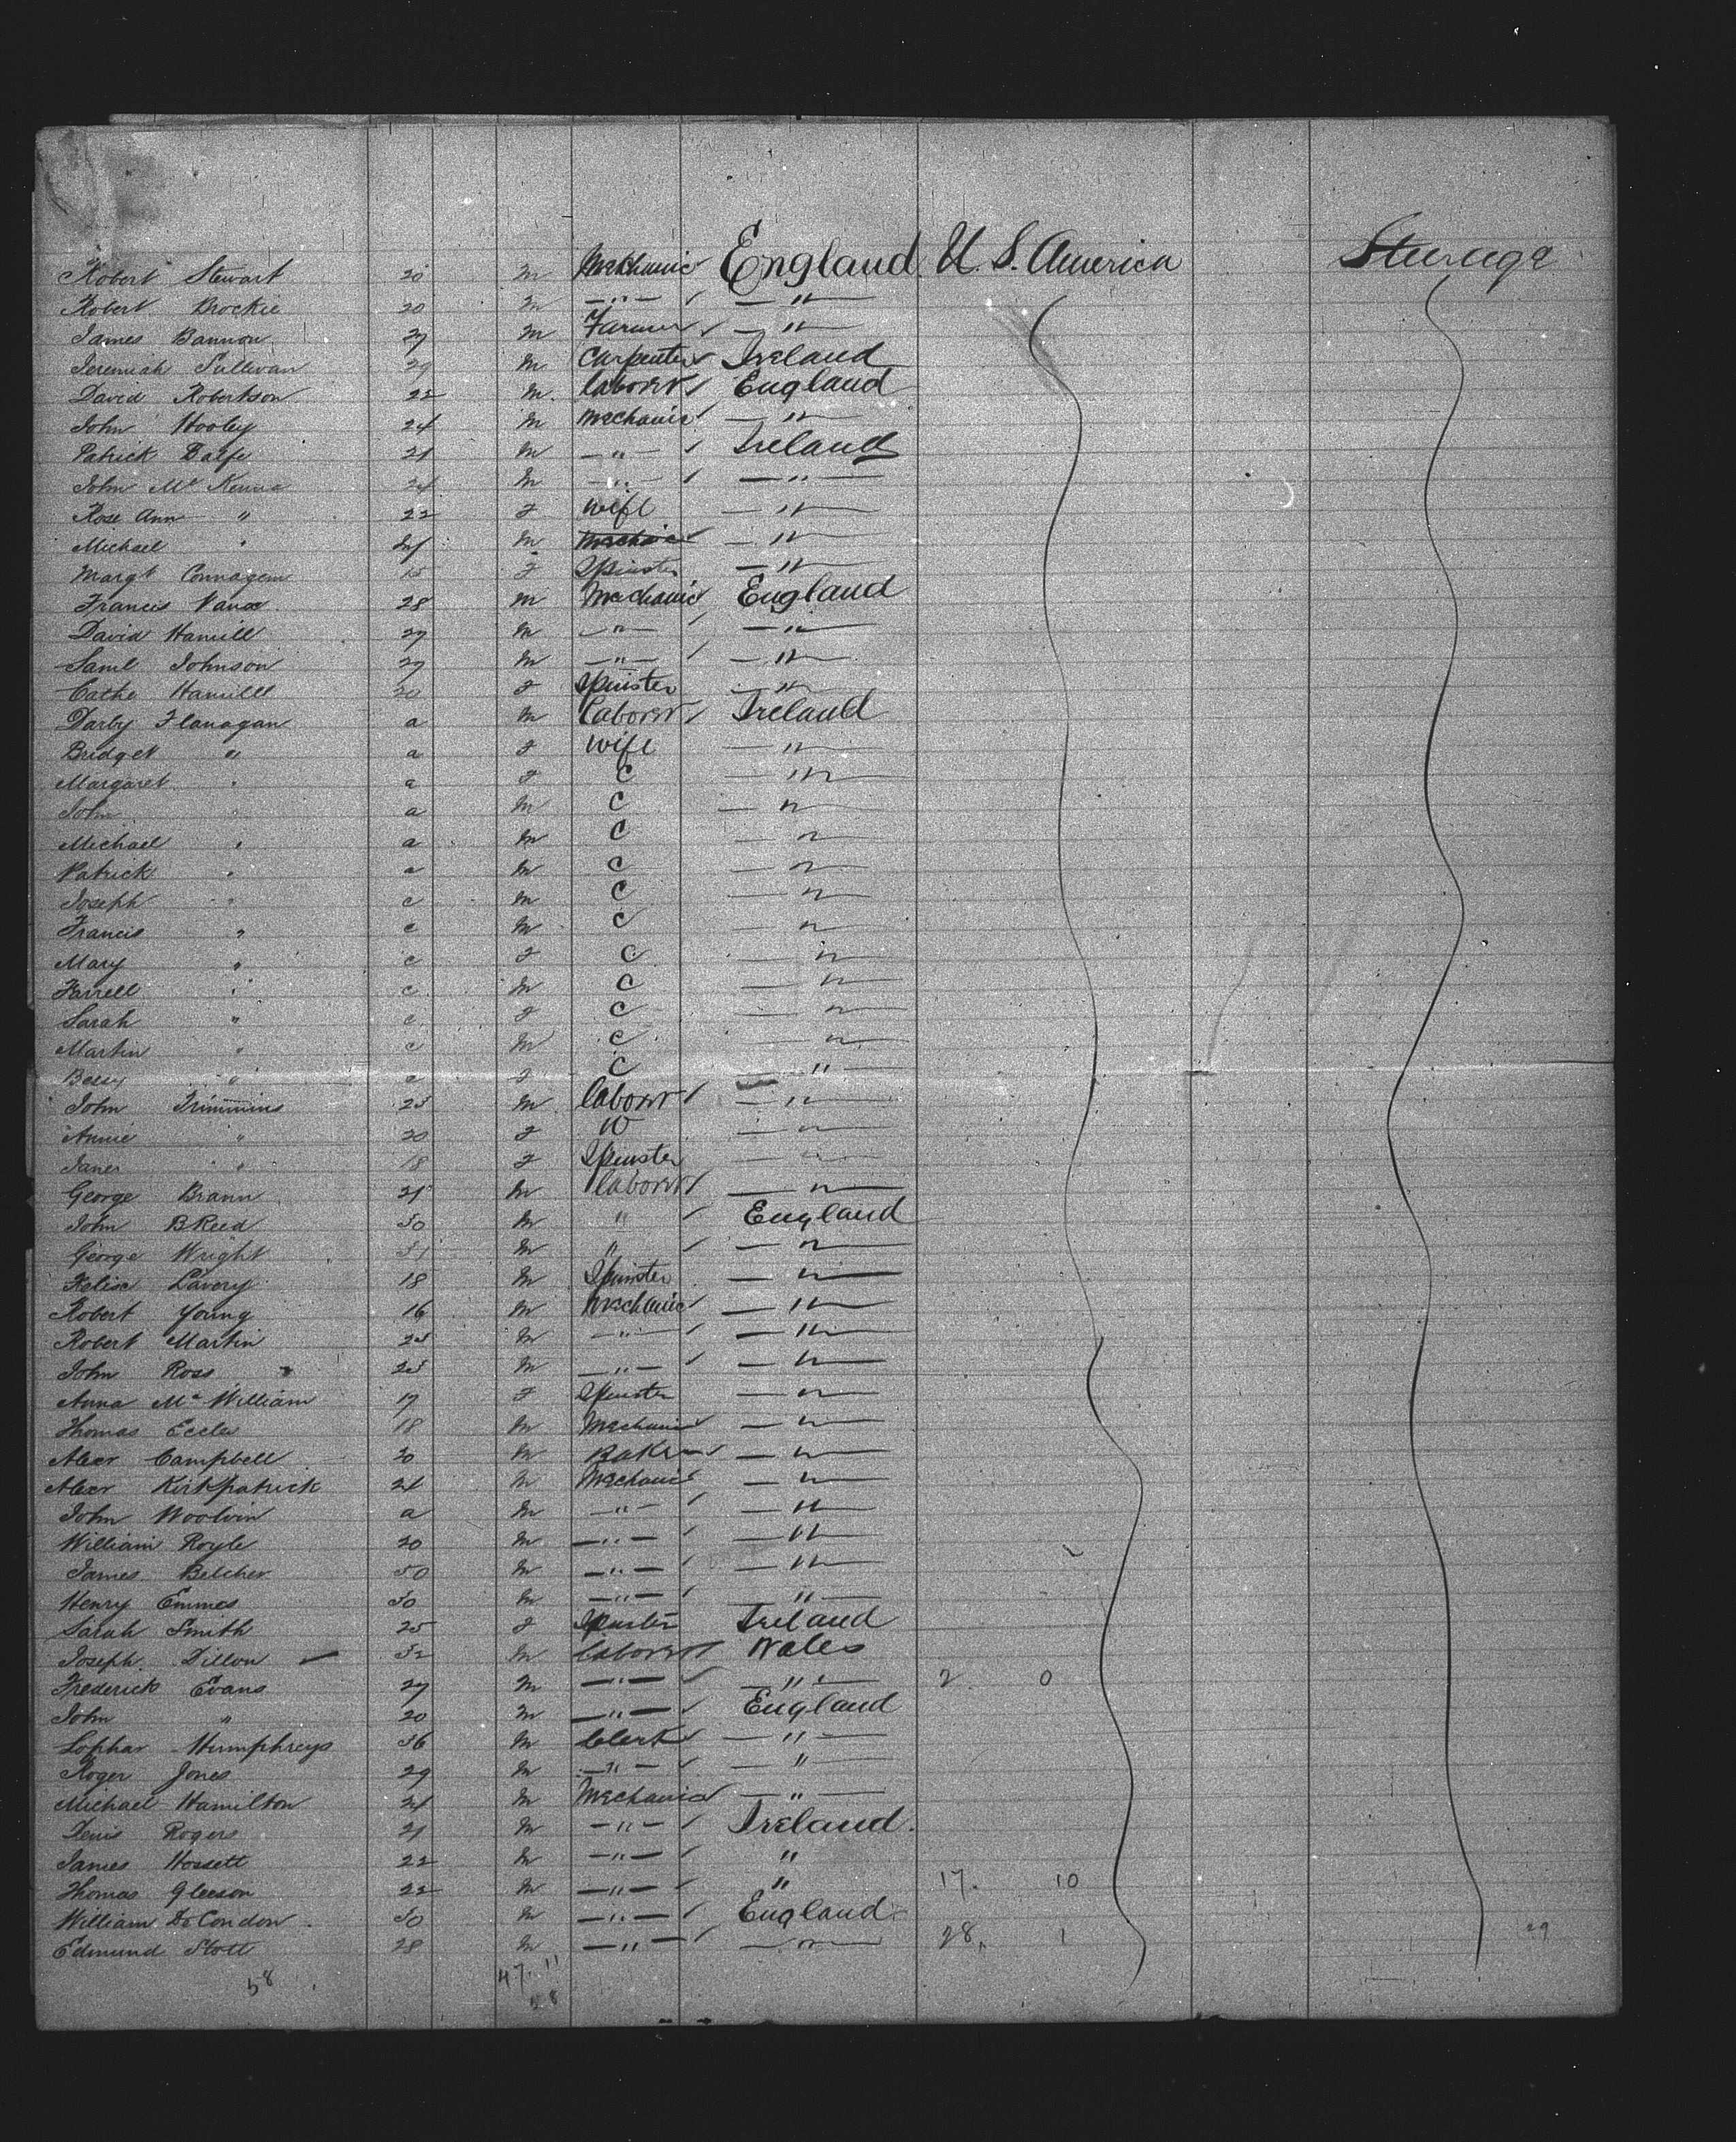 Robert Stewart 20 m Mechanic England U. S. America Steerage
Robert Brockie 20 m —"— —"—
James Bannon 27 m Farmer —"—
Jeremiah Sullivan 29 m Carpenter Ireland
David Robertson 22 m. Laborer England
John Hooley 24 m Mechanic —"—
Patrick 21 m —"— Ireland
John Mc Kenna 24 m —"— —"—
Rose Ann " 22 f Wife —"—
Michael " m Mechanic —"—
Margt 15 f Spinster —"—
Francis 28 m Mechanic England
David Hamill 27 m —"— —"—
Saml Johnson 27 m —"— —"—
Cathe Hamill 20 f Spinster —"—
Darby Flanagan a m Laborer Ireland
Bridget " a f Wife —"—
Margaret " a f C —"—
John " a m C —"—
Michael " a m C —"—
Patrick " a m C —"—
Joseph " c m C —"—
Francis " c m C —"—
Mary " c f C —"—
Farrell " c m C —"—
Sarah " c f C —"—
Martin " c m C —"—
Bessy " c f C —"—
John Trimmins 23 m Laborer —"—
Annie " 20 f W —"—
Janes " 18 f Spinster —"—
George Brann 21 m Laborer —"—
John B Reed 30 m " England
George Wright 31 m " —"—
Lavery 18 m Spinster —"—
Robert Young 16 m Mechanic —"—
Robert Martin 23 m —"— —"—
John Ross 23 m —"— —"—
Anna Mc William 17 f Spinster —"—
Thomas Eccles 18 m Mechanic —"—
Alexr Campbell 20 m Baker —"—
Alexr Kirkpatrick 21 m Mechanic —"—
John Woolvin a m —"— —"—
William Royle 20 m —"— —"—
James Belcher 50 m —"— —"—
Henry Emmes 30 m —"— —"—
Sarah Smith 25 f Spinster Ireland
Joseph Dillon — 32 m Laborer Wales
Frederick Evans 27 m —"— —"— 2 0
John " 20 m —"— England
Humphreys 36 m Clerk —"—
Roger Jones 29 m —"— —"—
Michael Hamilton 21 m Mechanic —"—
Denis Rogers 21 m —"— Ireland.
James Hossett 22 m —"— "
Thomas Gleeson 22 m —"— " 17. 10
William De Condon 30 m —"— England
Edmund Stott 28 m —"— —"— 28. 1 29
58 47. 11
58